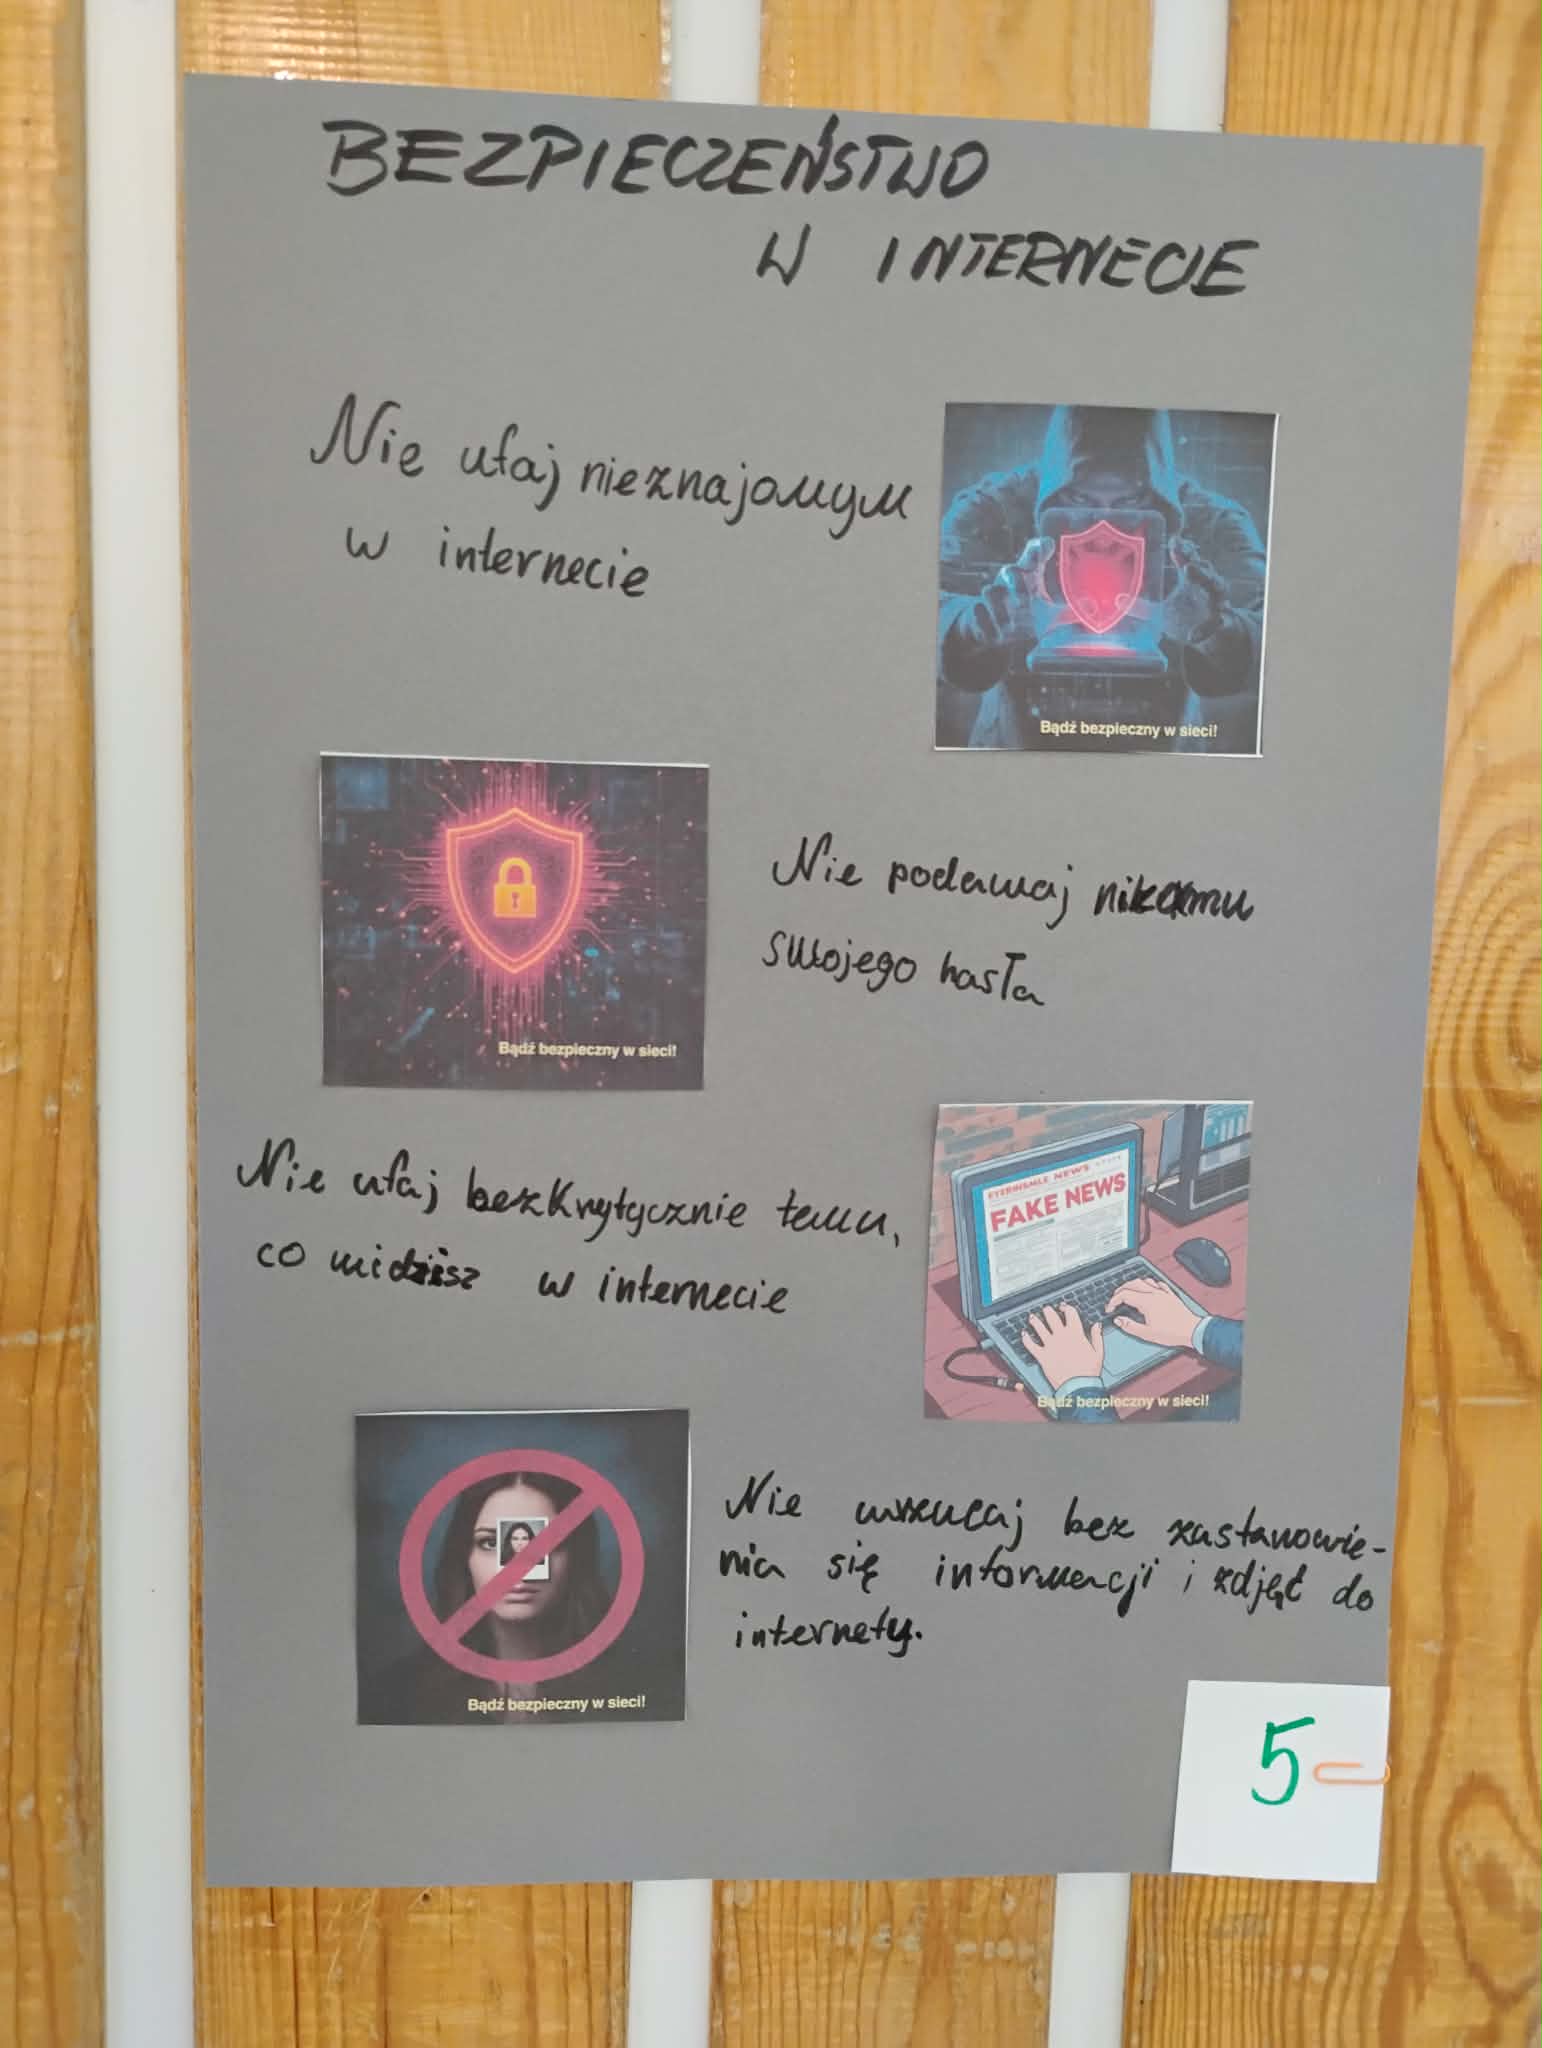 BEZPIECZEŃSTWO
W INTERNECIE
Nie ufaj nieznajomym
w internecie
Bądź bezpieczny w sieci!
Bądź bezpieczny w sieci!
Nie podawaj nikomu
swojego hasła
Nie ufaj bezkrytycznie temu,
co widzisz w internecie
NEWS
FAKE NEWS
Bądź bezpieczny w sieci!
Nie wrzucaj bez zastanowie-
nia się informacji i zdjęć do
internetu.
Bądź bezpieczny w sieci!
5